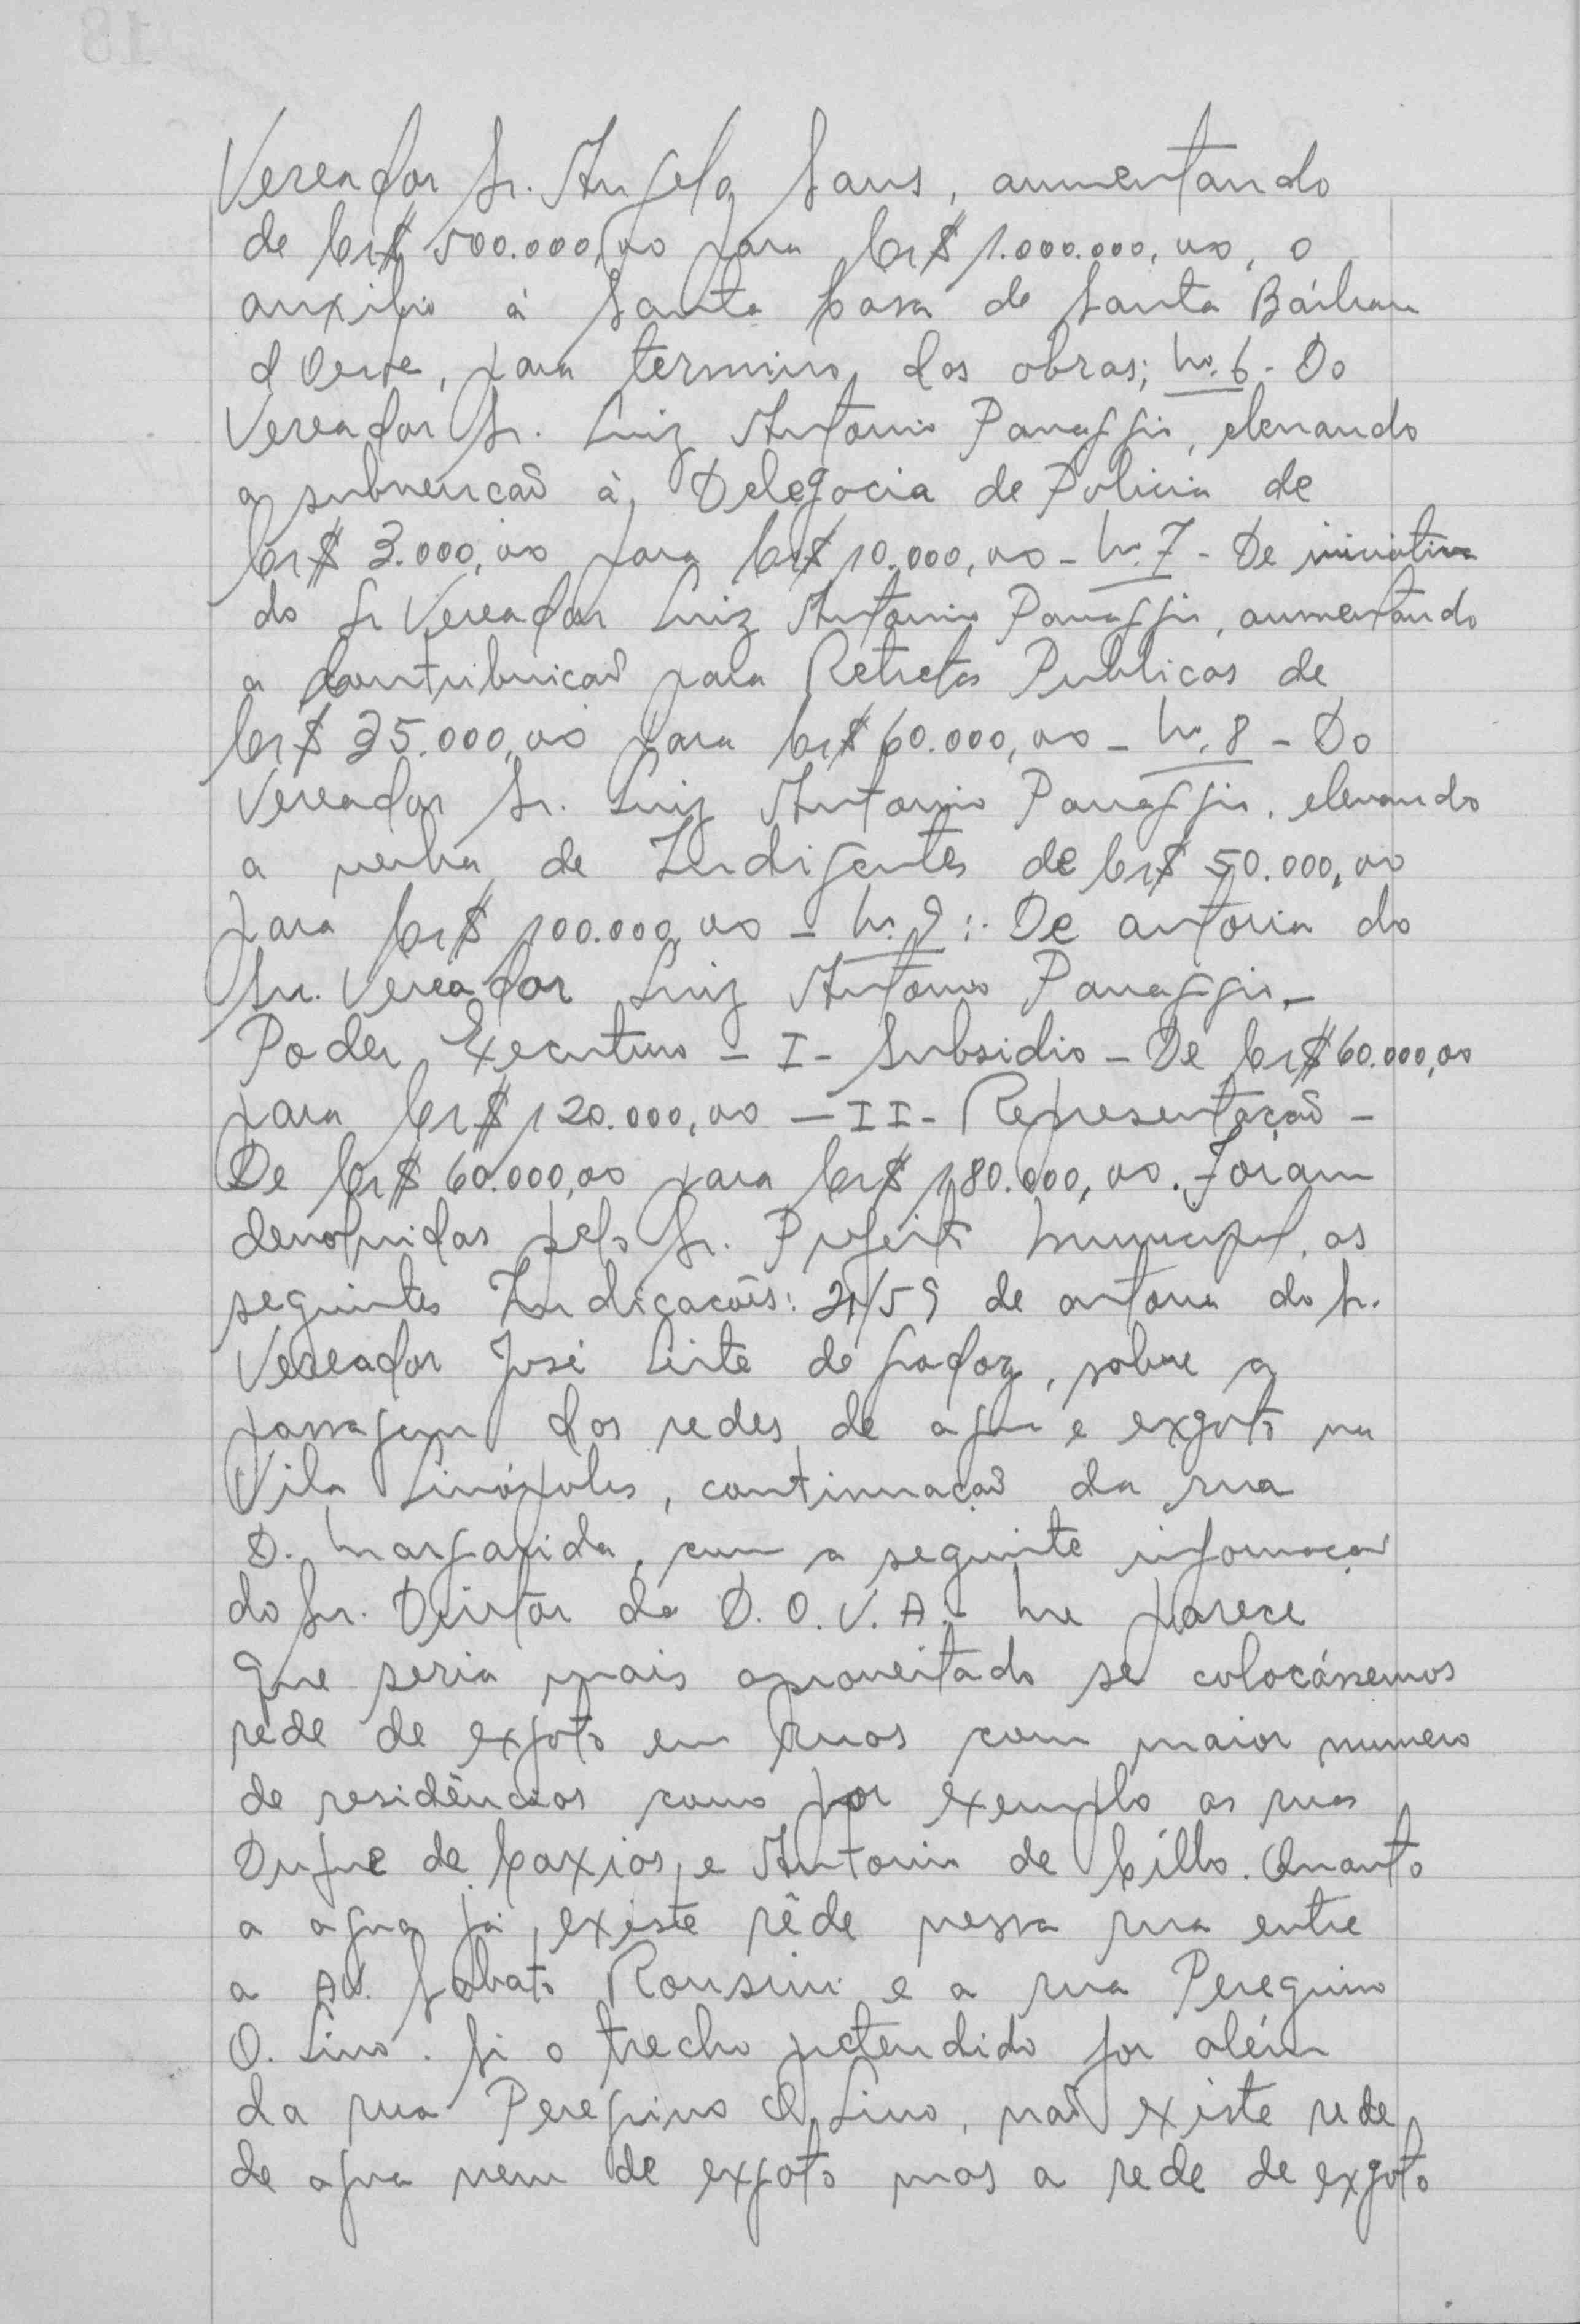 Vereador Sr. Angelo Sans, aumentando
de Cr$ 500.000,00 para Cr$ 1.000.000,00, o
auxilio à Santa Casa de Santa Bárbara
d'Oeste, para termino das obras; Nº. 6 - Do
Vereador Sr. Luiz Antonio Panaggio, elevando
a subvencão à Delegacia de Policia de
Cr$ 3.000,00 para Cr$ 10.000,00 - Nº. 7 - De iniciativa
do Sr Vereador Luiz Antonio Panaggio, aumentando
a Contribuicão para Retretas Publicas de
Cr$ 35.000,00 para Cr$ 60.000,00 - Nº. 8 - Do
Vereador Sr. Luiz Antonio Panaggio, elevando
a verba de Indigentes de Cr$ 50.000,00
para Cr$ 100.000,00 - Nº. 9 :. De autoria do
Sr. Vereador Luiz Antonio Panaggio. -
Poder Executivo - I - Subsidio - De Cr$ 60.000,00
para Cr$ 120.000,00 - II - Representação -
De Cr$ 60.000,00 para Cr$ 180.000,00. Foram
devolvidas pelo Sr. Prefeito Municipal, as
seguintes Indicações: 21/59 de autoria do Sr.
Vereador José Leite de Godoy, sobre a
passagem das redes de agua e exgoto na
Vila Linópolis, continuação da rua
D. Margarida, com a seguinte informação
do Sr. Diretor da D. O. V. A. - Me parece
que seria mais aproveitado se colocássemos
rede de exgoto em Ruas com maior numero
de residências como por exemplo as ruas
Duque de Caxias, e Antonio de Cillo. Quanto
a agua já existe rêde nessa rua entre
a AV. Sabato Ronsini e a rua Peregrino
O. Lino. Si o trecho pretendido for além
da rua Peregrino O. Lino, não existe rede
de agua nem de exgoto mas a rede de exgoto